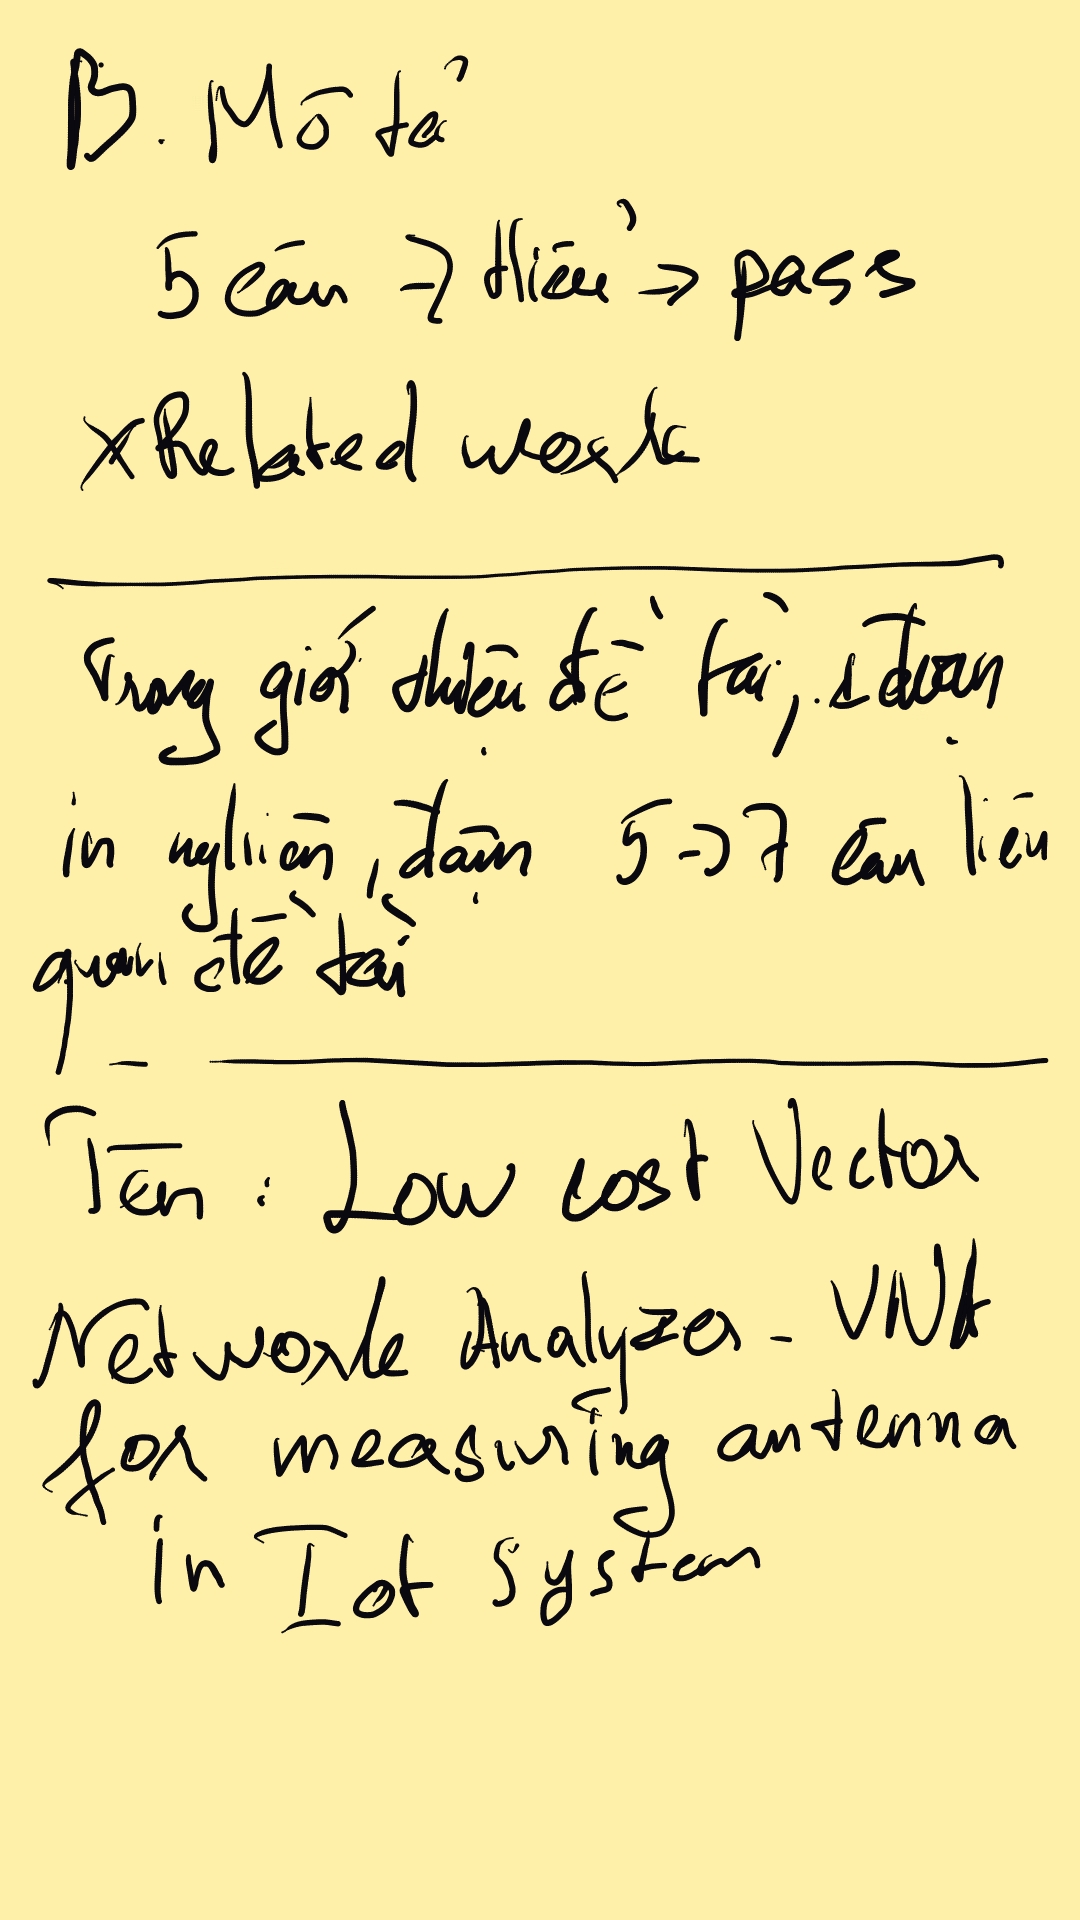 B. Mô tả
5 câu → hiểu → pass
x Related work
Trong giới thiệu đề tài, 1 đoạn
in nghiên, đậm 5 → 7 câu liên
quan đề tài
Tên : Low cost Vector
Network Analyzer - VNA
for measuring antenna
in Iot System